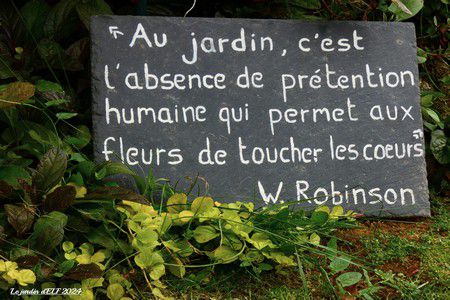 "Au jardin, c'est
l'absence de prétention
humaine qui permet aux
fleurs de toucher les coeurs"
W. Robinson
Le jardin d'ELF 2024